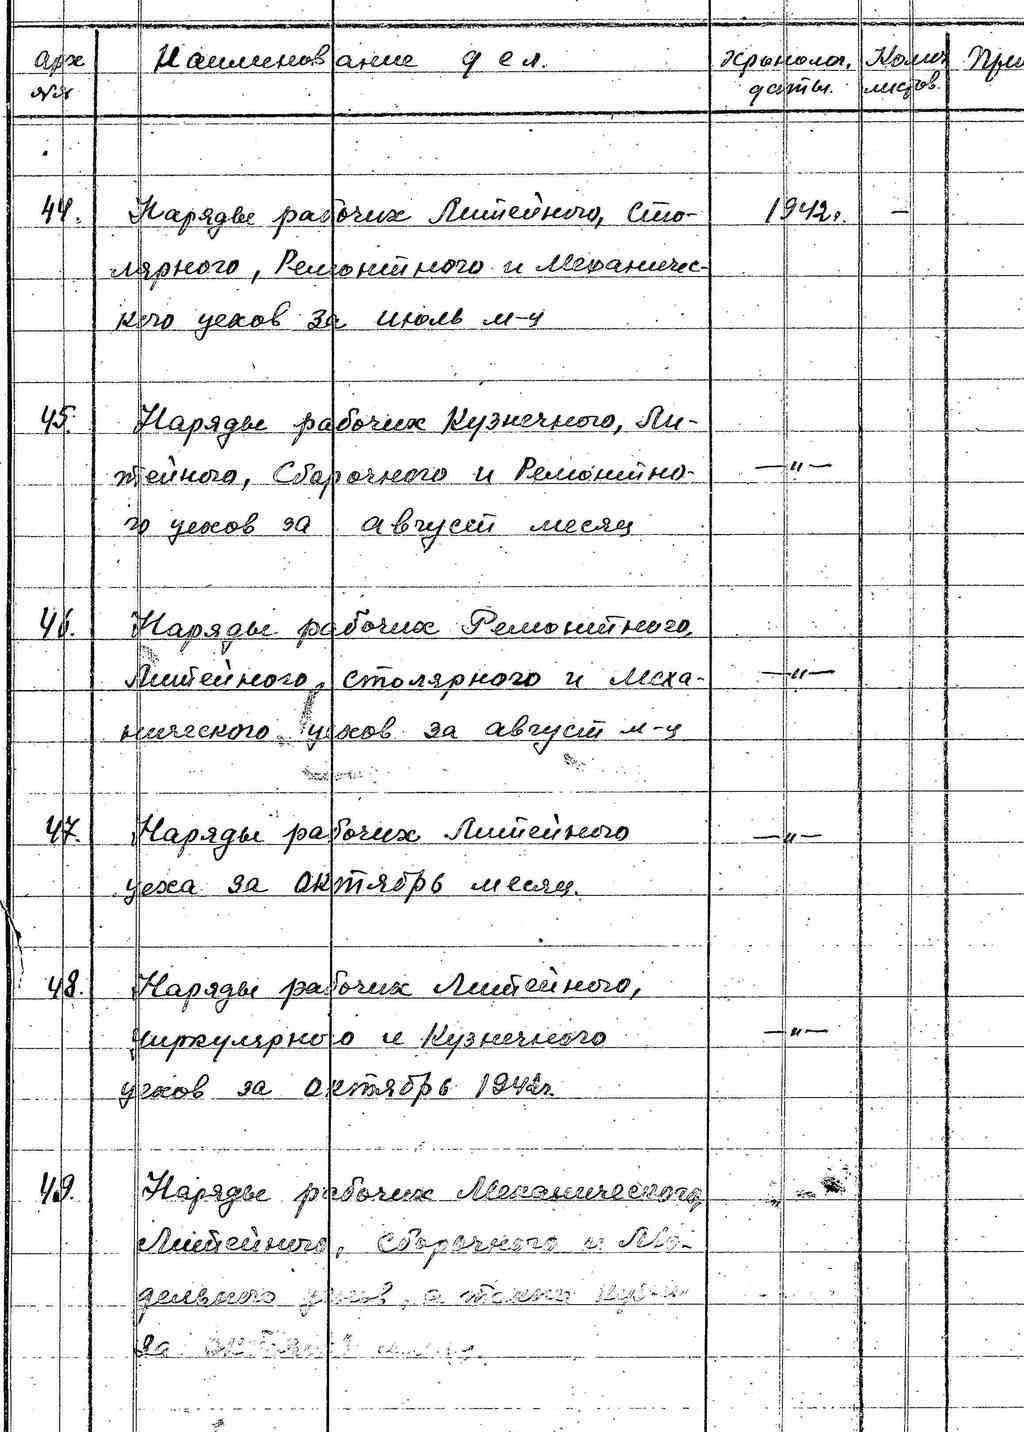 арх Наименование дел. Хронолог. Колич При
№№ даты. листов.
44. Наряды рабочих Литейного, Сто- 1942г. —
лярного, Ремонтного и Механичес-
кого цехов за июль м-ц
45. Наряды рабочих Кузнечного, Ли-
тейного, Сборочного и Ремонтно- —"—
го цехов за август месяц
46. Наряды рабочих Ремонтного,
Литейного, столярного и Меха- —"—
нического цехов за август м-ц
47. Наряды рабочих Литейного —"—
цеха за октябрь месяц.
48. Наряды рабочих Литейного,
Циркулярного и Кузнечного —"—
цехов за октябрь 1942г.
49. Наряды рабочих Механического, "—
Литейного, сборочного и Мо-
дельного цехов, а
за